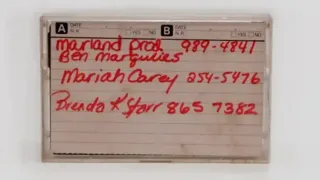 A DATE B DATE
N.R. YES NO N.R. YES NO
marland prod. 989-4841
Ben margulies
Mariah Carey 254-5476
Brenda K Starr 865 7382